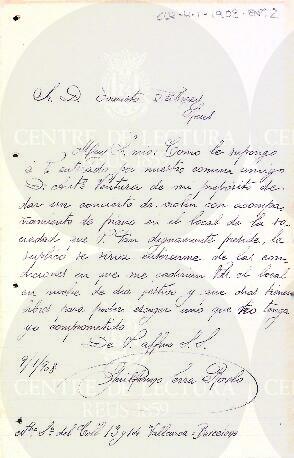 CENTRE DE LECTURA
S. D. Evaristo Fábregas
Reus
Muy Sr. mio: Como le supongo
á V. enterado por nuestro comun amigo
D. Ventura de mi propósito de
dar un concierto de violin con acompa-
ñamiento de piano en el local de la so-
ciedad que V. tan dignamente preside, le
suplico se sirva enterarme de las con-
diciones en que me cederian Vds. el local
en noche de dia festivo y que dias tienen
libres para poder escoger uno que no tenga
ya comprometido
De V. affmo S. S.
9/1/908
CENTRE DE LECTURA
REUS 1859
Ntra. Sra. del Coll 13 y 14 Vallcarca - Barcelona